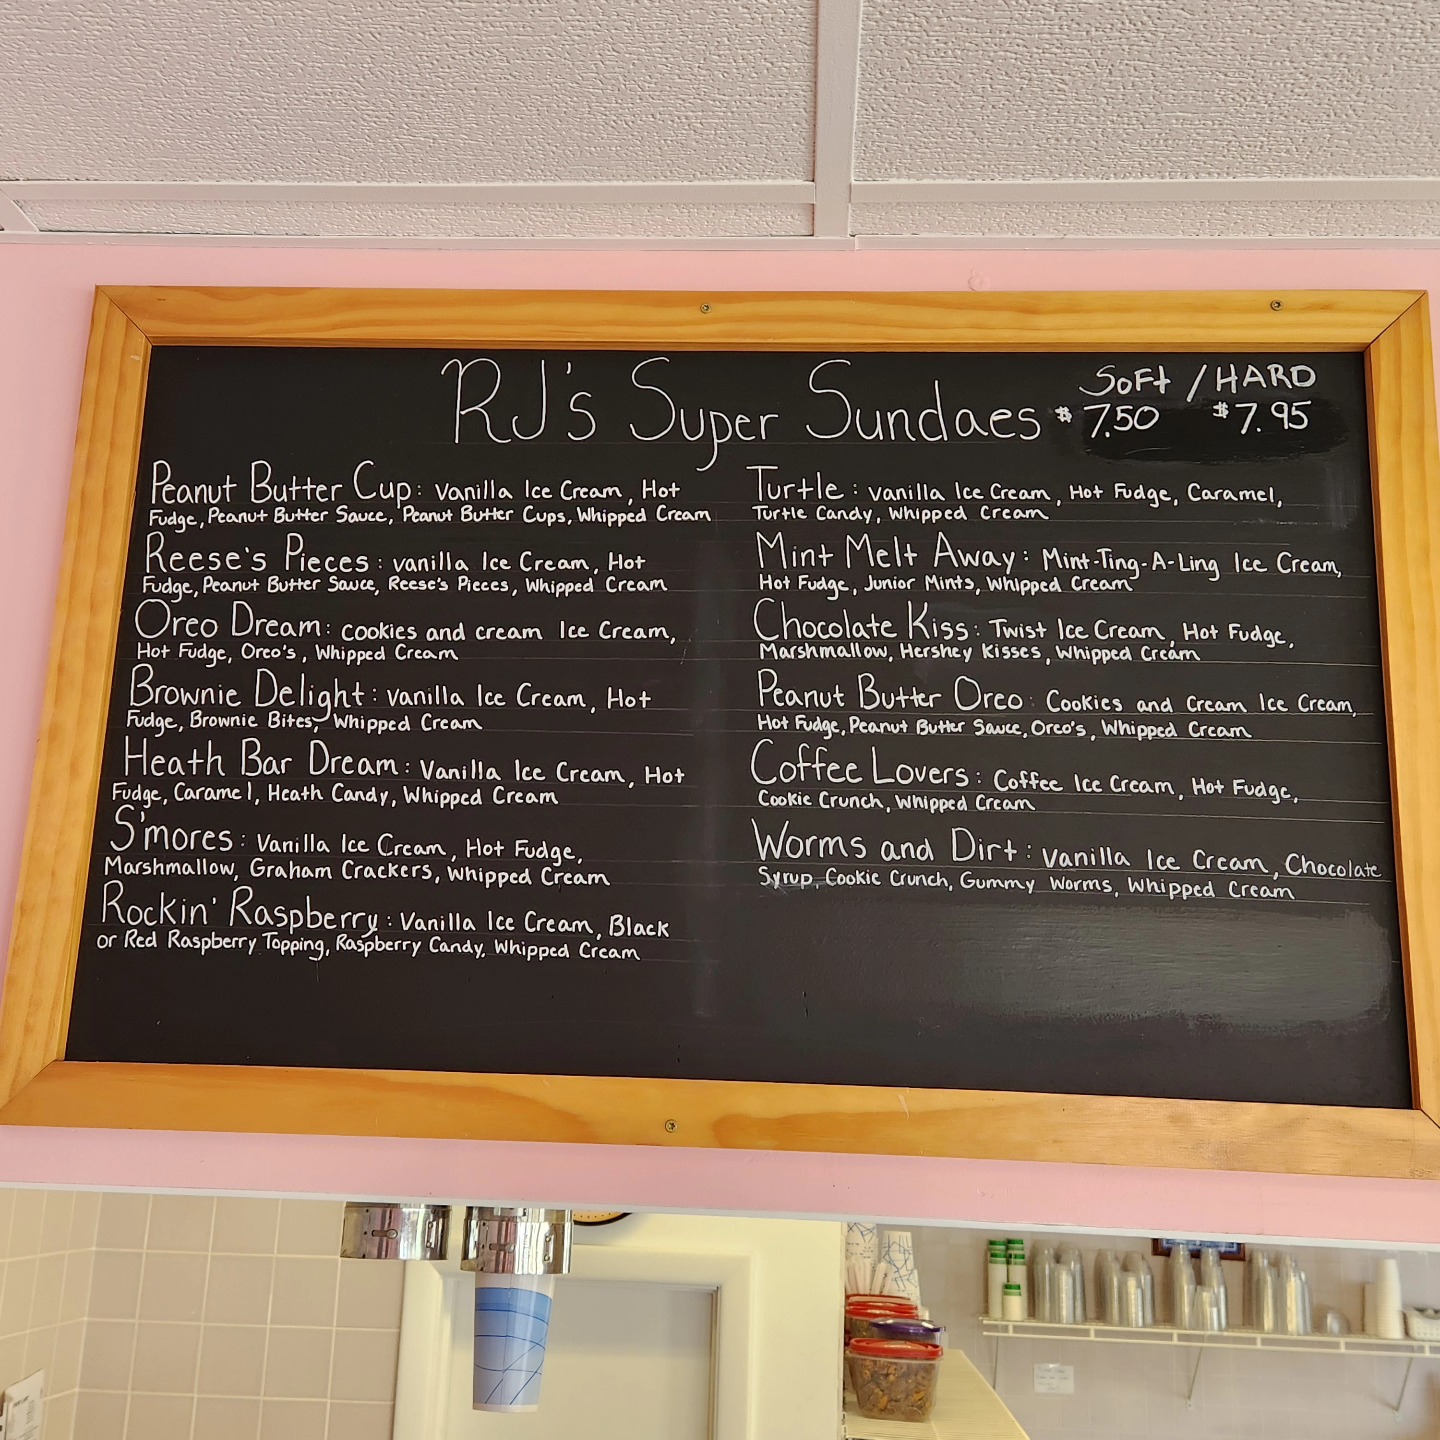 RJ's Super Sundaes
SOFt / HARD
$7.50 $7.95
Peanut Butter Cup: Vanilla Ice Cream, Hot
Fudge, Peanut Butter Sauce, Peanut Butter Cups, Whipped Cream
Reese's Pieces: vanilla Ice Cream, Hot
Fudge, Peanut Butter Sauce, Reese's Pieces, Whipped Cream
Oreo Dream: Cookies and cream Ice Cream,
Hot Fudge, Oreo's, Whipped Cream
Brownie Delight: Vanilla Ice Cream, Hot
Fudge, Brownie Bites, Whipped Cream
Heath Bar Dream: Vanilla Ice Cream, Hot
Fudge, Caramel, Heath Candy, Whipped Cream
S'mores: Vanilla Ice Cream, Hot Fudge,
Marshmallow, Graham Crackers, Whipped Cream
Rockin' Raspberry: Vanilla Ice Cream, Black
or Red Raspberry Topping, Raspberry Candy, Whipped Cream
Turtle: Vanilla Ice Cream, Hot Fudge, Caramel,
Turtle Candy, Whipped Cream
Mint Melt Away: Mint-Ting-A-Ling Ice Cream,
Hot Fudge, Junior Mints, Whipped Cream
Chocolate Kiss: Twist Ice Cream, Hot Fudge,
Marshmallow, Hershey Kisses, Whipped Cream
Peanut Butter Oreo: Cookies and Cream Ice Cream,
Hot Fudge, Peanut Butter Sauce, Oreo's, Whipped Cream
Coffee Lovers: Coffee Ice Cream, Hot Fudge,
Cookie Crunch, Whipped Cream
Worms and Dirt: Vanilla Ice Cream, Chocolate
Syrup, Cookie Crunch, Gummy Worms, Whipped Cream